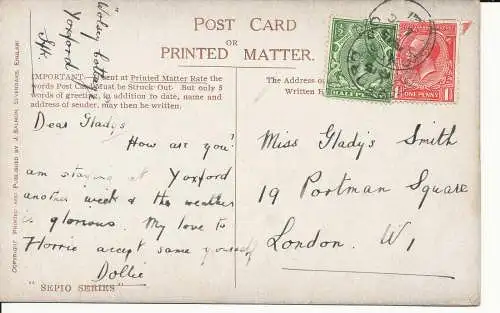 POST CARD
OR
PRINTED MATTER.
"Wolsey Cottage"
Yoxford
IMPORTANT—If sent at Printed Matter Rate the
words Post Card Must be Struck Out. But only 5
words of greeting, in addition to date, name and
address of sender, may then be written.
The Address
Written
HALFPENNY
ONE PENNY
Dear Gladys
How are you?
am staying at Yoxford
another week & the weather
is glorious. My love to
Horrie accept same yourself
Dollie
"SEPIO SERIES"
Miss Gladys Smith
19 Portman Square
London. W1
COPYRIGHT PRINTED AND PUBLISHED BY J. SALMON, SEVENOAKS, ENGLAND